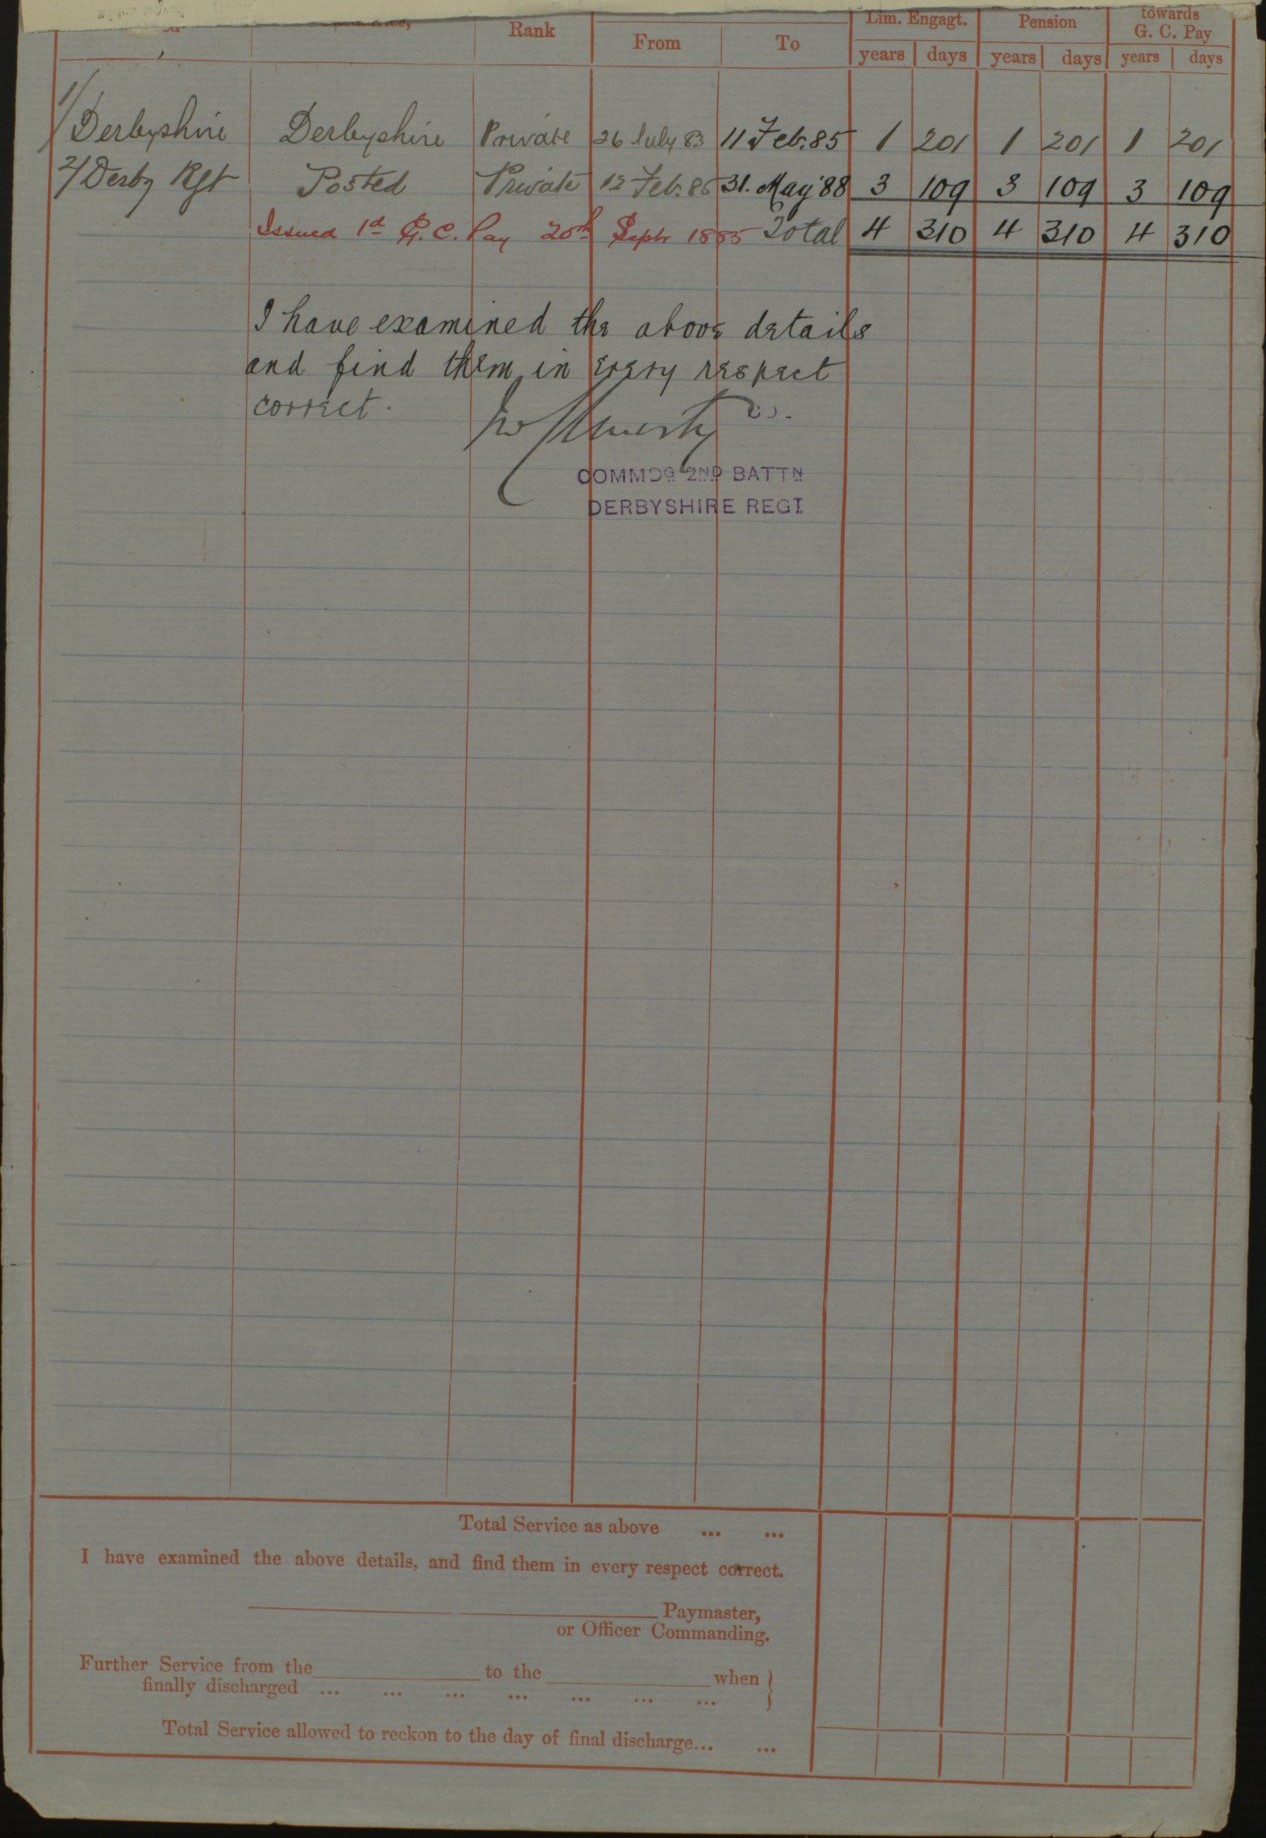 Rank From To Lim. Engagt. Pension towards G. C. Pay
years days years days years days
1/ Derbyshire Derbyshire Private 26 July 83 11 Feb. 85 1 201 1 201 1 201
2/ Derby Rgt Posted Private 12 Feb. 85 31. May '88 3 109 3 109 3 109
Issued 1d G. C. Pay 20th Sept 1885 Total 4 310 4 310 4 310
I have examined the above details
and find them in every respect
correct.
COMMDG 2ND BATTN
DERBYSHIRE REGT
Total Service as above ... ...
I have examined the above details, and find them in every respect correct.
Paymaster,
or Officer Commanding.
Further Service from the to the when }
finally discharged ... ... ... ... ... ... ...
Total Service allowed to reckon to the day of final discharge... ...